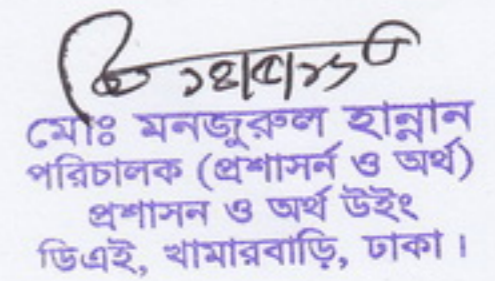 ১৪/৫/১৬
মোঃ মনজুরুল হান্নান
পরিচালক (প্রশাসন ও অর্থ)
প্রশাসন ও অর্থ উইং
ডিএই, খামারবাড়ি, ঢাকা।